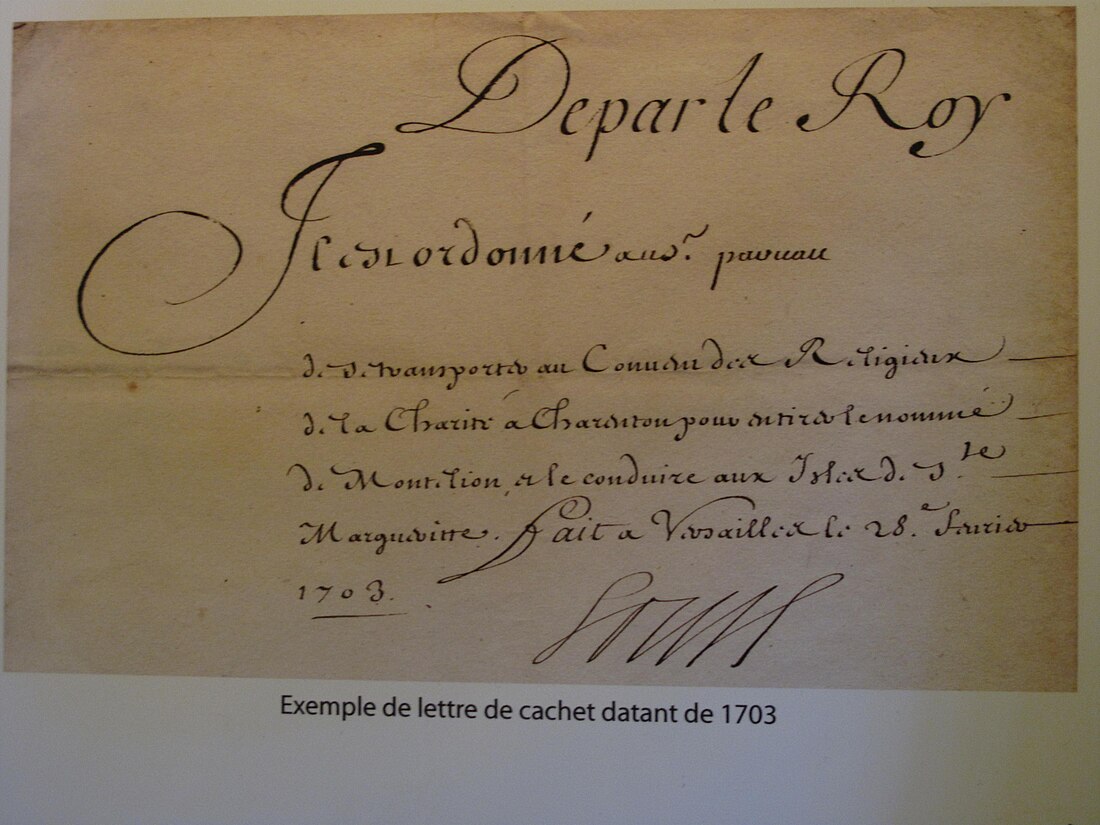 De par le Roy
Il est ordonné au Sr.
de se transporter au Couvent des Religieux
de la Charité a Charenton pour en tirer le nommé
de Montelion, et le conduire aux Isles de Ste
Margueritte. Fait a Versailles le 28.e fevrier
1703.
Louis
Exemple de lettre de cachet datant de 1703